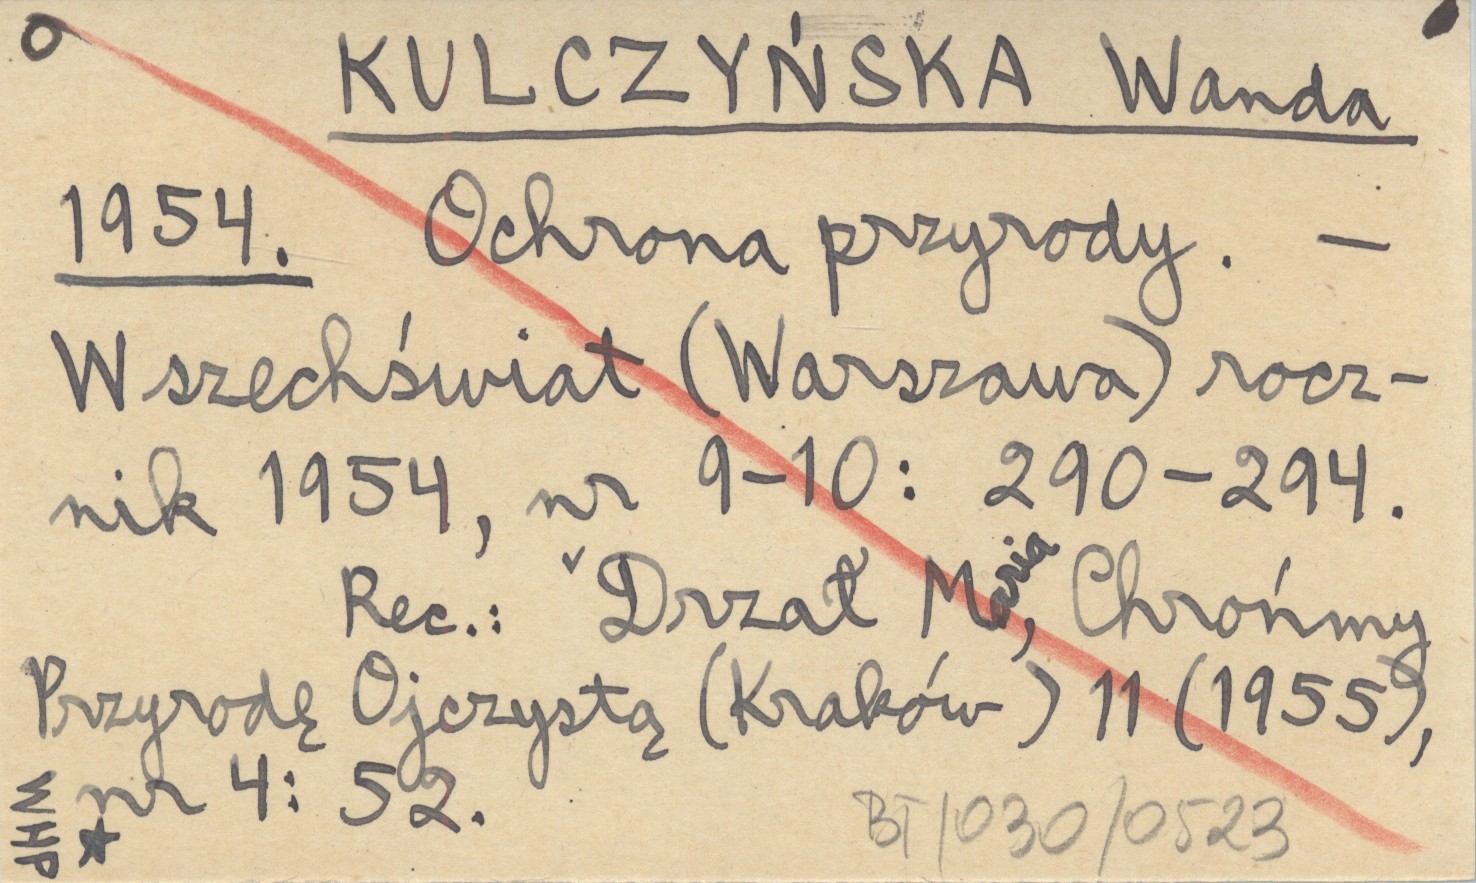 KULCZYŃSKA Wanda
1954. Ochrona przyrody. —
Wszechświat (Warszawa) rocz-
nik 1954, nr 9-10: 290-294.
Rec.: Drzał Maria, Chrońmy
Przyrodę Ojczystą (Kraków) 11 (1955),
nr 4: 52.
BT/030/0523
WHP